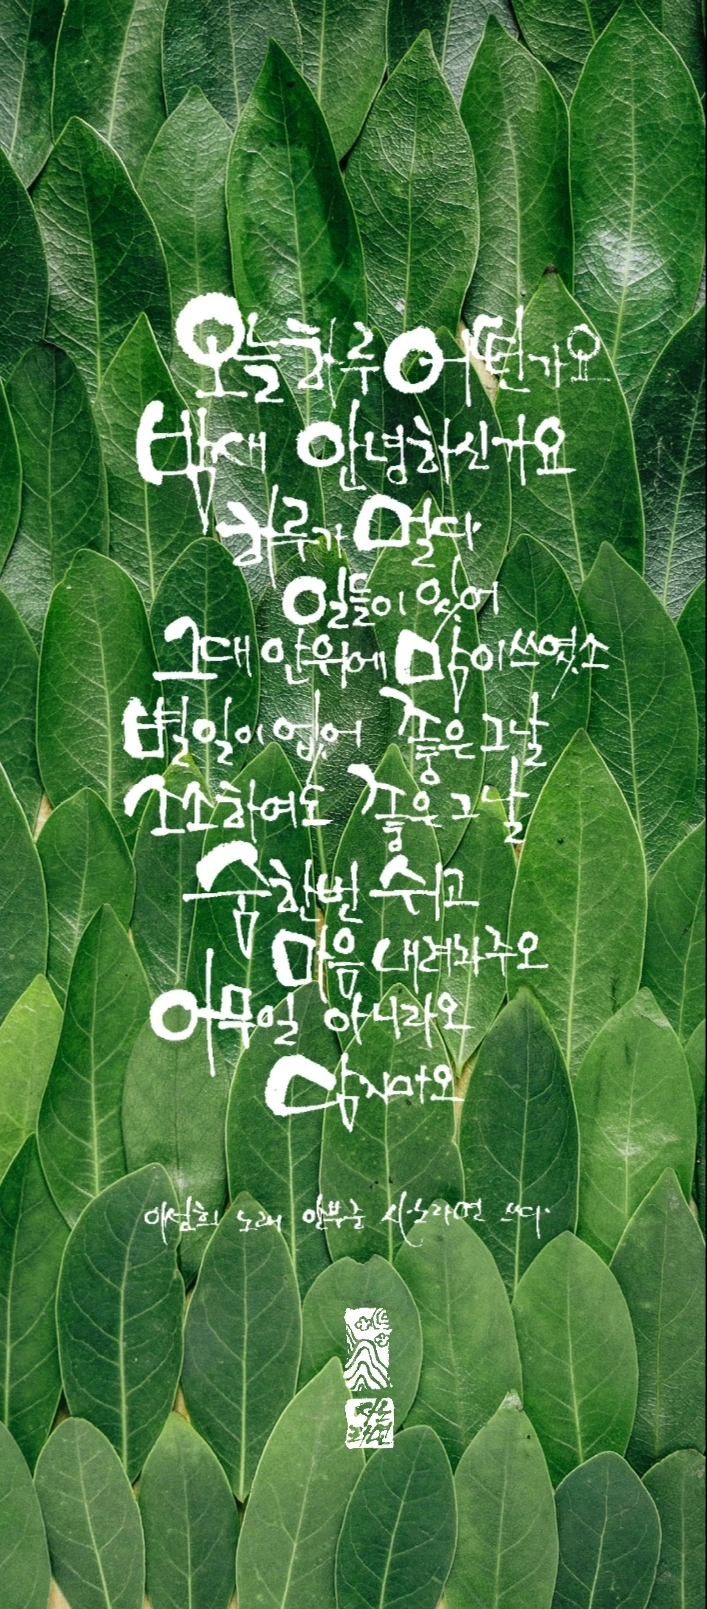 오늘하루 어떤가요
밤새 안녕하신가요
하루가 멀다
일들이 있어
그대 안위에 맘이쓰였소
별일이없어 좋은그날
소소하여도 좋은그날
숨한번 쉬고
마음 내려놔주오
아무일 아니라오
삼지마오
이선희 노래 안부를 시노라면 쓰다.